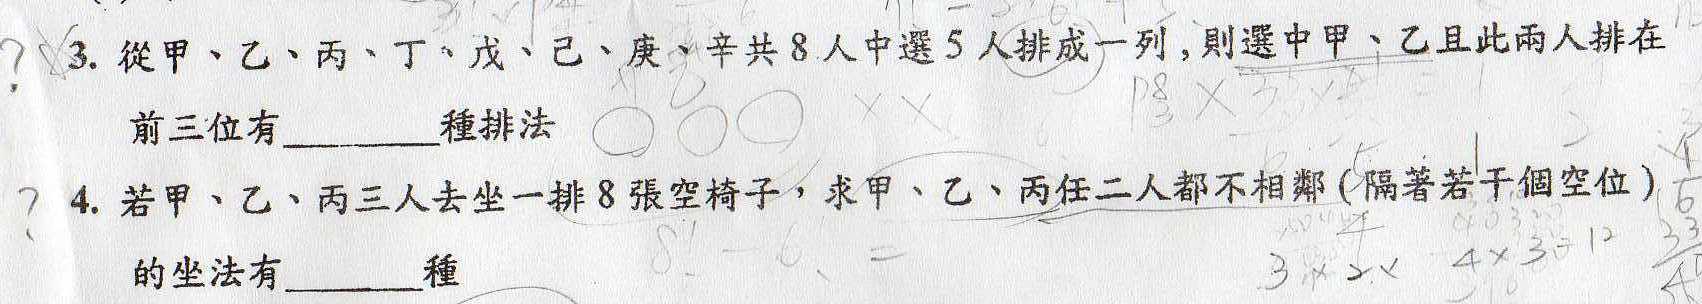 3. 從甲、乙、丙、丁、戊、己、庚、辛共8人中選5人排成一列,則選中甲、乙且此兩人排在
前三位有________種排法
4. 若甲、乙、丙三人去坐一排8張空椅子,求甲、乙、丙任二人都不相鄰(隔著若干個空位)
的坐法有_______種
3×2×
4×3=12